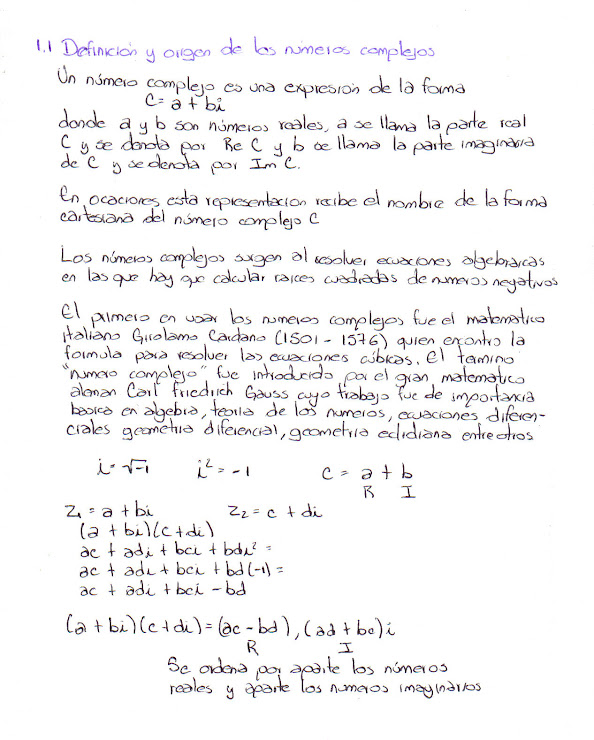 1.1 Definición y origen de los números complejos
Un número complejo es una expresión de la forma
C = a + bi
donde a y b son números reales, a se llama la parte real
C y se denota por Re C y b se llama la parte imaginaria
de C y se denota por Im C.
En ocaciones esta representacion recibe el nombre de la forma
cartesiana del número complejo C
Los números complejos surgen al resolver ecuaciones algebraicas
en las que hay que calcular raices cuadradas de numeros negativos
El primero en usar los numeros complejos fue el matematico
italiano Girolamo Cardano (1501 - 1576) quien encontro la
formula para resolver las ecuaciones cúbicas. El termino
"numero complejo" fue introducido por el gran matematico
aleman Carl Friedrich Gauss cuyo trabajo fue de importancia
basica en algebra, teoria de los numeros, ecuaciones diferen-
ciales geometria diferencial, geometria eclidiana entre otros
i = √-1 i² = -1 C = a + b
R I
Z₁ = a + bi Z₂ = c + di
(a + bi)(c + di)
ac + adi + bci + bdi² =
ac + adi + bci + bd(-1) =
ac + adi + bci - bd
(a + bi)(c + di) = (ac - bd), (ad + bc)i
R I
Se ordena por aparte los números
reales y aparte los numeros imaginarios